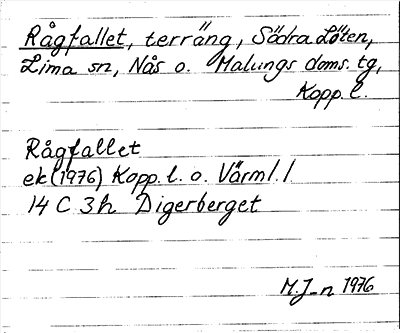 Rågfallet, terräng, Södra Löten,
Lima sn, Nås o. Malungs doms. tg,
Kopp. l.
Rågfallet
ek (1976) Kopp. l. o. Värml. l
14 C 3h Digerberget
M.J-n 1976